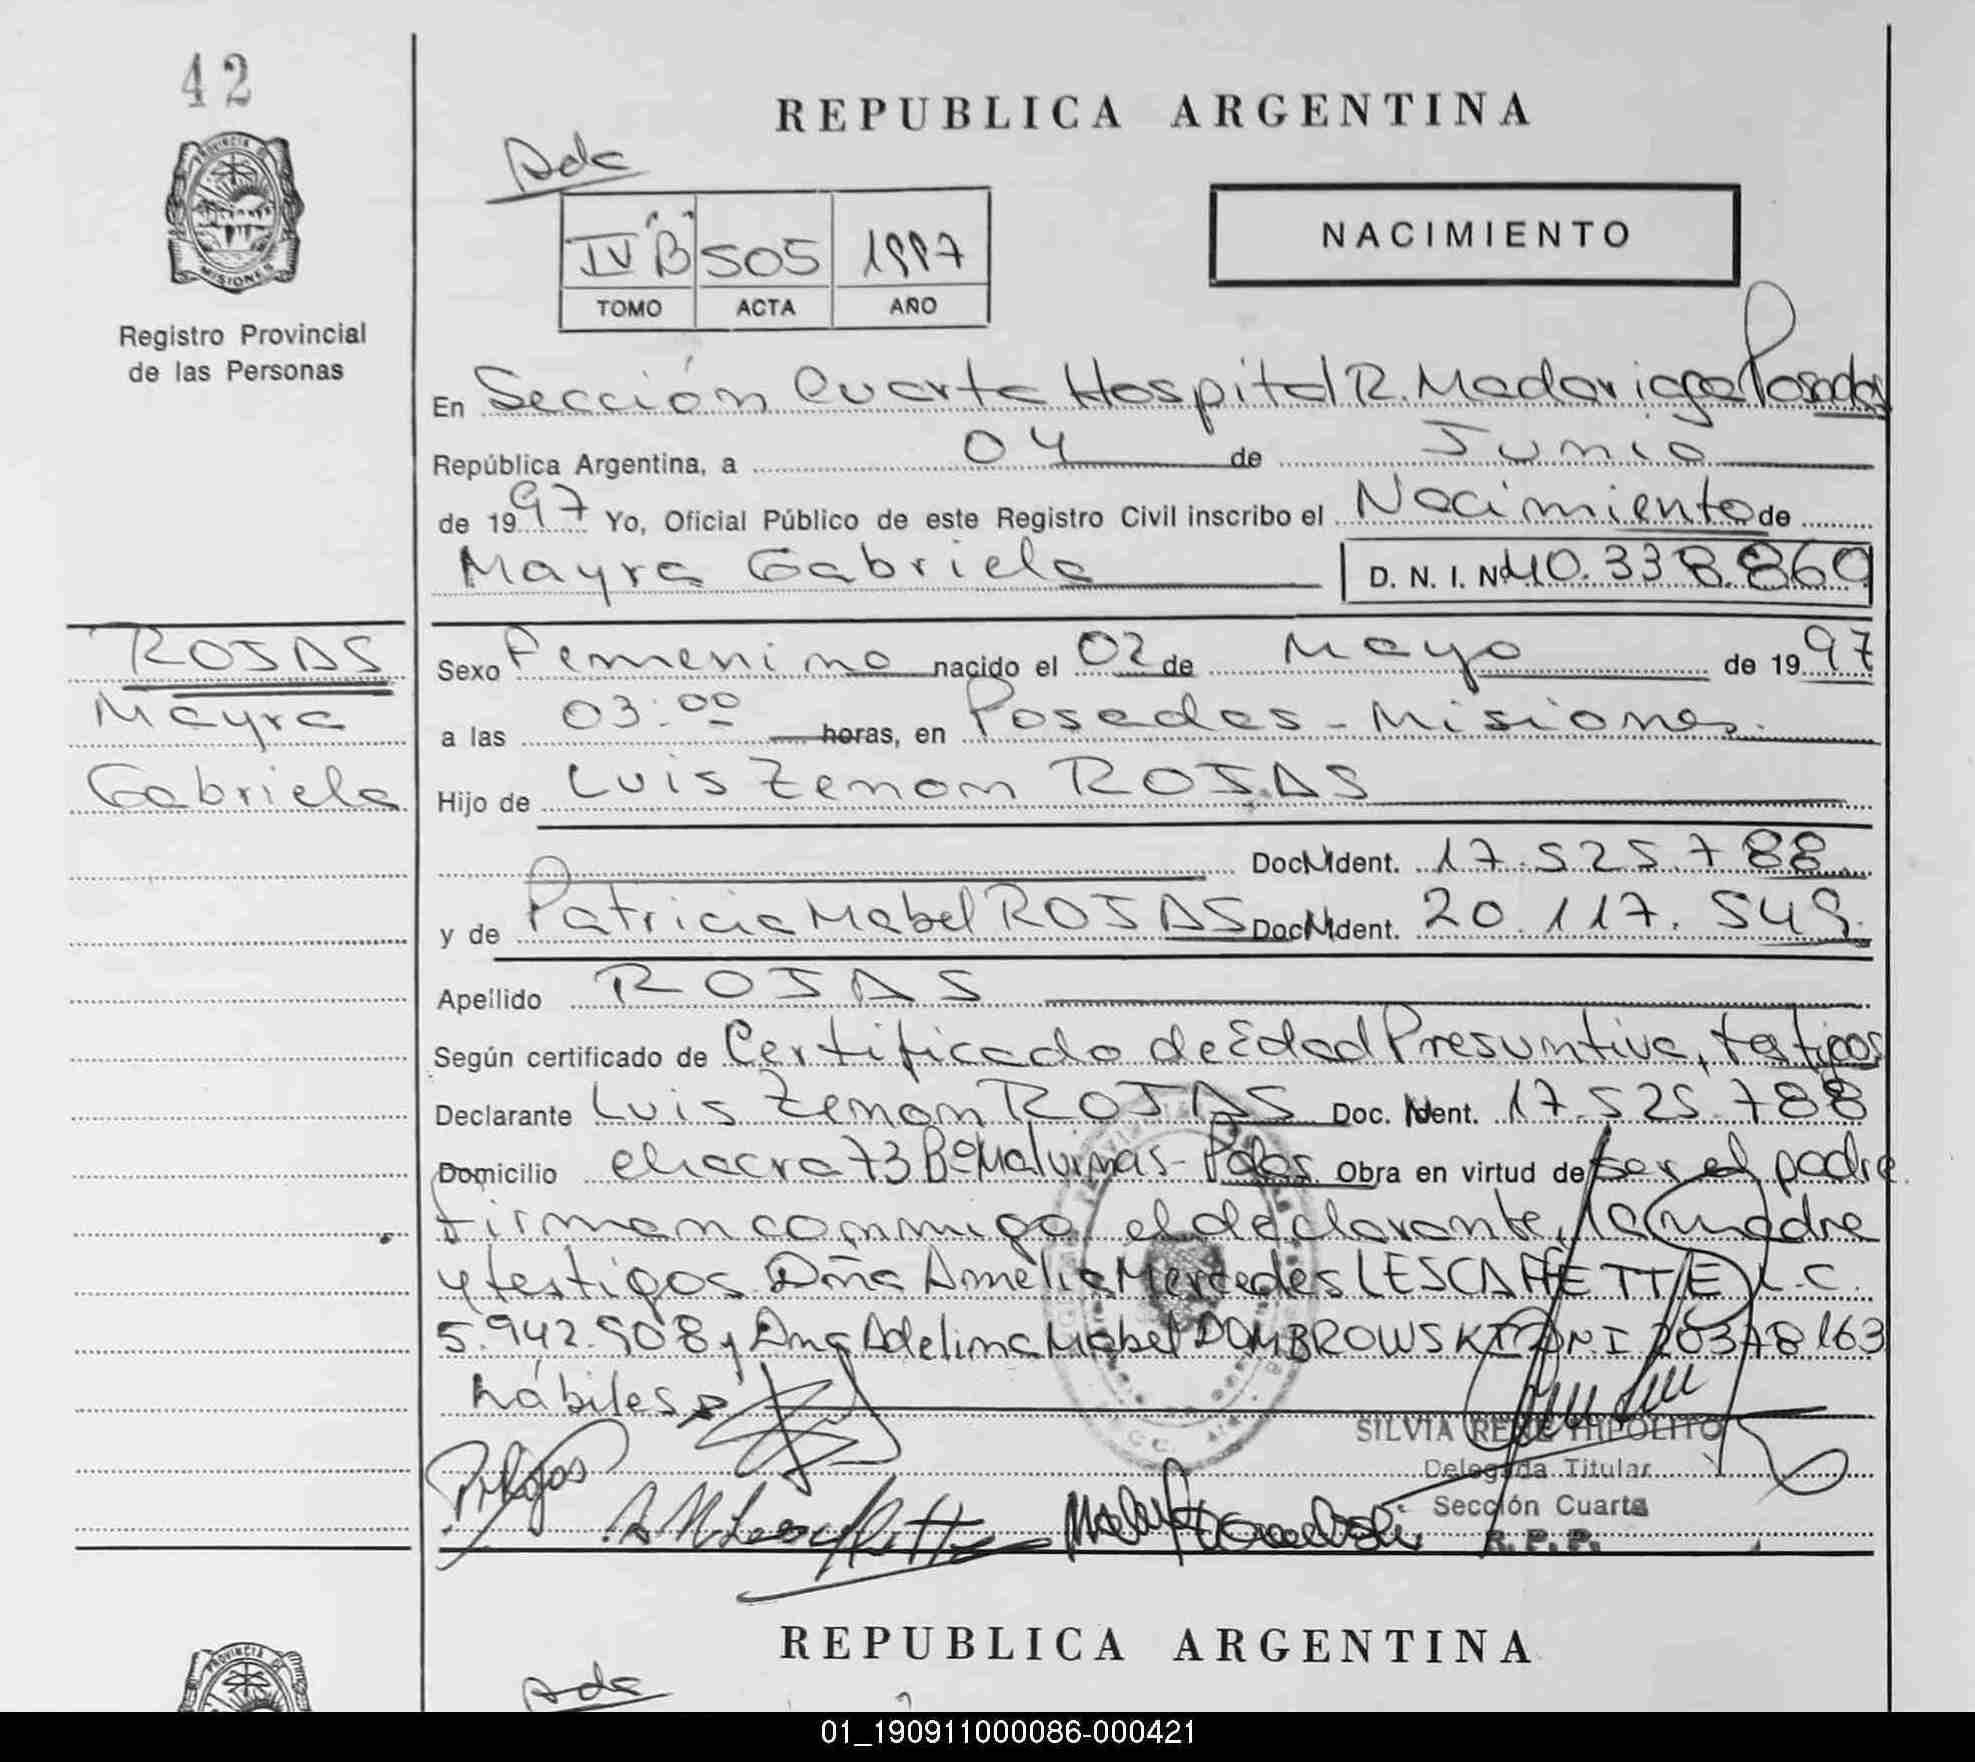 42
REPUBLICA ARGENTINA
PROVINCIA DE
MISIONES
Registro Provincial
de las Personas
Ada
IV "B" 505 1997
TOMO ACTA AÑO
NACIMIENTO
En Sección Cuarta Hospital R. Madariaga Posadas
República Argentina, a 04 de Junio
de 1997 Yo, Oficial Público de este Registro Civil inscribo el Nacimiento de
Mayra Gabriela D. N. I. Nº 40.338.860
ROJAS
Mayra
Gabriela
Sexo Femenino nacido el 02 de Mayo de 1997
a las 03:00 horas, en Posadas - Misiones.
Hijo de Luis Zenon ROJAS
Doc. Ident. 17.525.788
y de Patricia Mabel ROJAS Doc. Ident. 20.117.549.
Apellido ROJAS
Según certificado de Certificado de Edad Presuntiva, testigos
Declarante Luis Zenon ROJAS Doc. Ident. 17.525.788
Domicilio chacra 73 Bº Malvinas - Pdas Obra en virtud de ser el padre.
firman conmigo el declarante, la madre
y testigos Dña Amelia Mercedes LESCAFFETTE L.C.
5.942.908 y Ana Adelina Mabel DOMBROWSKI DNI 20378163
hábiles
SILVIA RENE HIPOLITO
Delegada Titular
Sección Cuarta
R. P. P.
REPUBLICA ARGENTINA
PROVINCIA DE
Ada
01_190911000086-000421